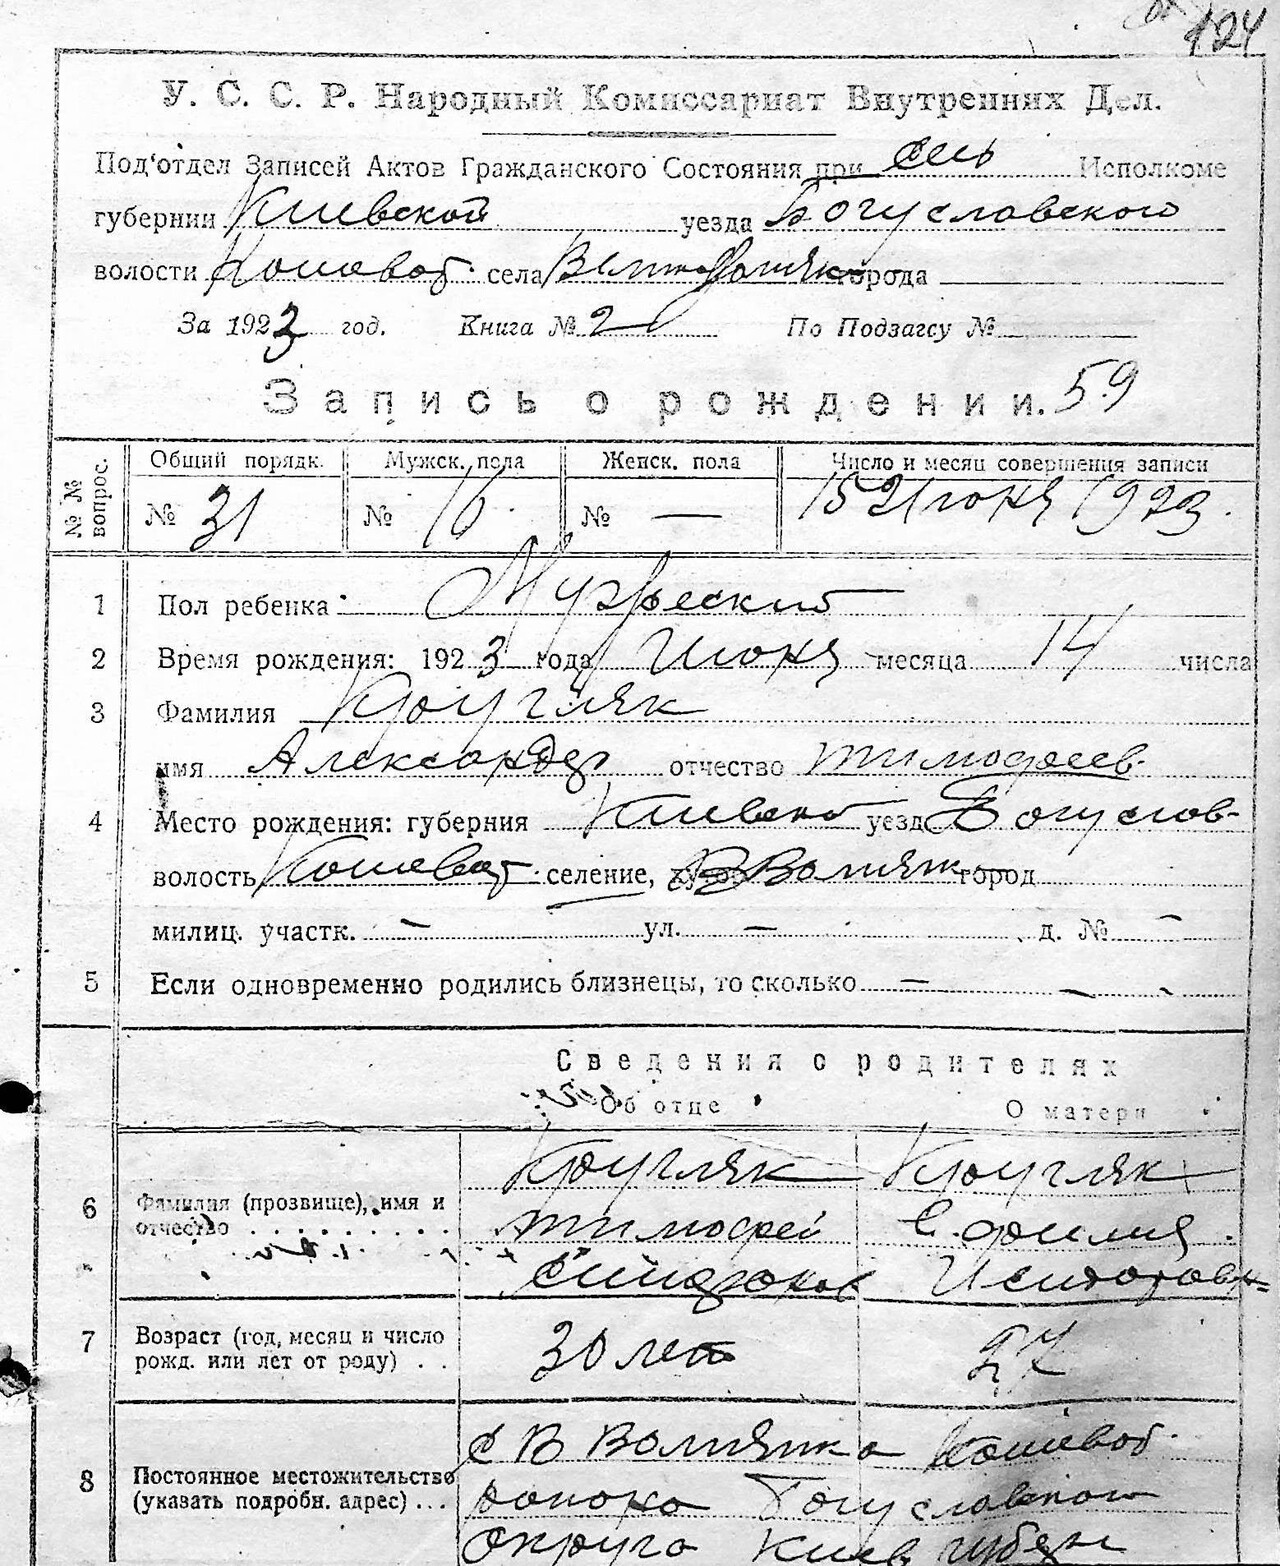 124
У. С. С. Р. Народный Комиссариат Внутренних Дел.
Под'отдел Записей Актов Гражданского Состояния при Сель Исполкоме
губернии Киевской уезда Богуславского
волости Кошеват. села города
За 1923 год. Книга № 2 По Подзагсу №
Запись о рождении. 59
№ № вопрос. Общий порядк. Мужск. пола Женск. пола Число и месяц совершения записи
№ 31 № 16 № — 15 Июня 1923.
1 Пол ребенка Мужеский
2 Время рождения: 1923 года Июня месяца 14 числа
3 Фамилия Кругляк
имя Александр отчество Тимофеев.
4 Место рождения: губерния Киевск уезд Богуслов-
волость Кошеват. селение, хутор В Вольняк город
милиц. участк. — ул. — д. № —
5 Если одновременно родились близнецы, то сколько — —
Сведения о родителях
Об отце О матери
6 Фамилия (прозвище), имя и отчество . . . . . . . . Кругляк Кругляк
Тимофей Ефимия
Исидоровн=
7 Возраст (год, месяц и число рожд. или лет от роду) . . 30 лет 27
8 Постоянное местожительство (указать подробн. адрес) . . . С В Вольнянка Кошеват.
района Богуславского
округа Киев губерн